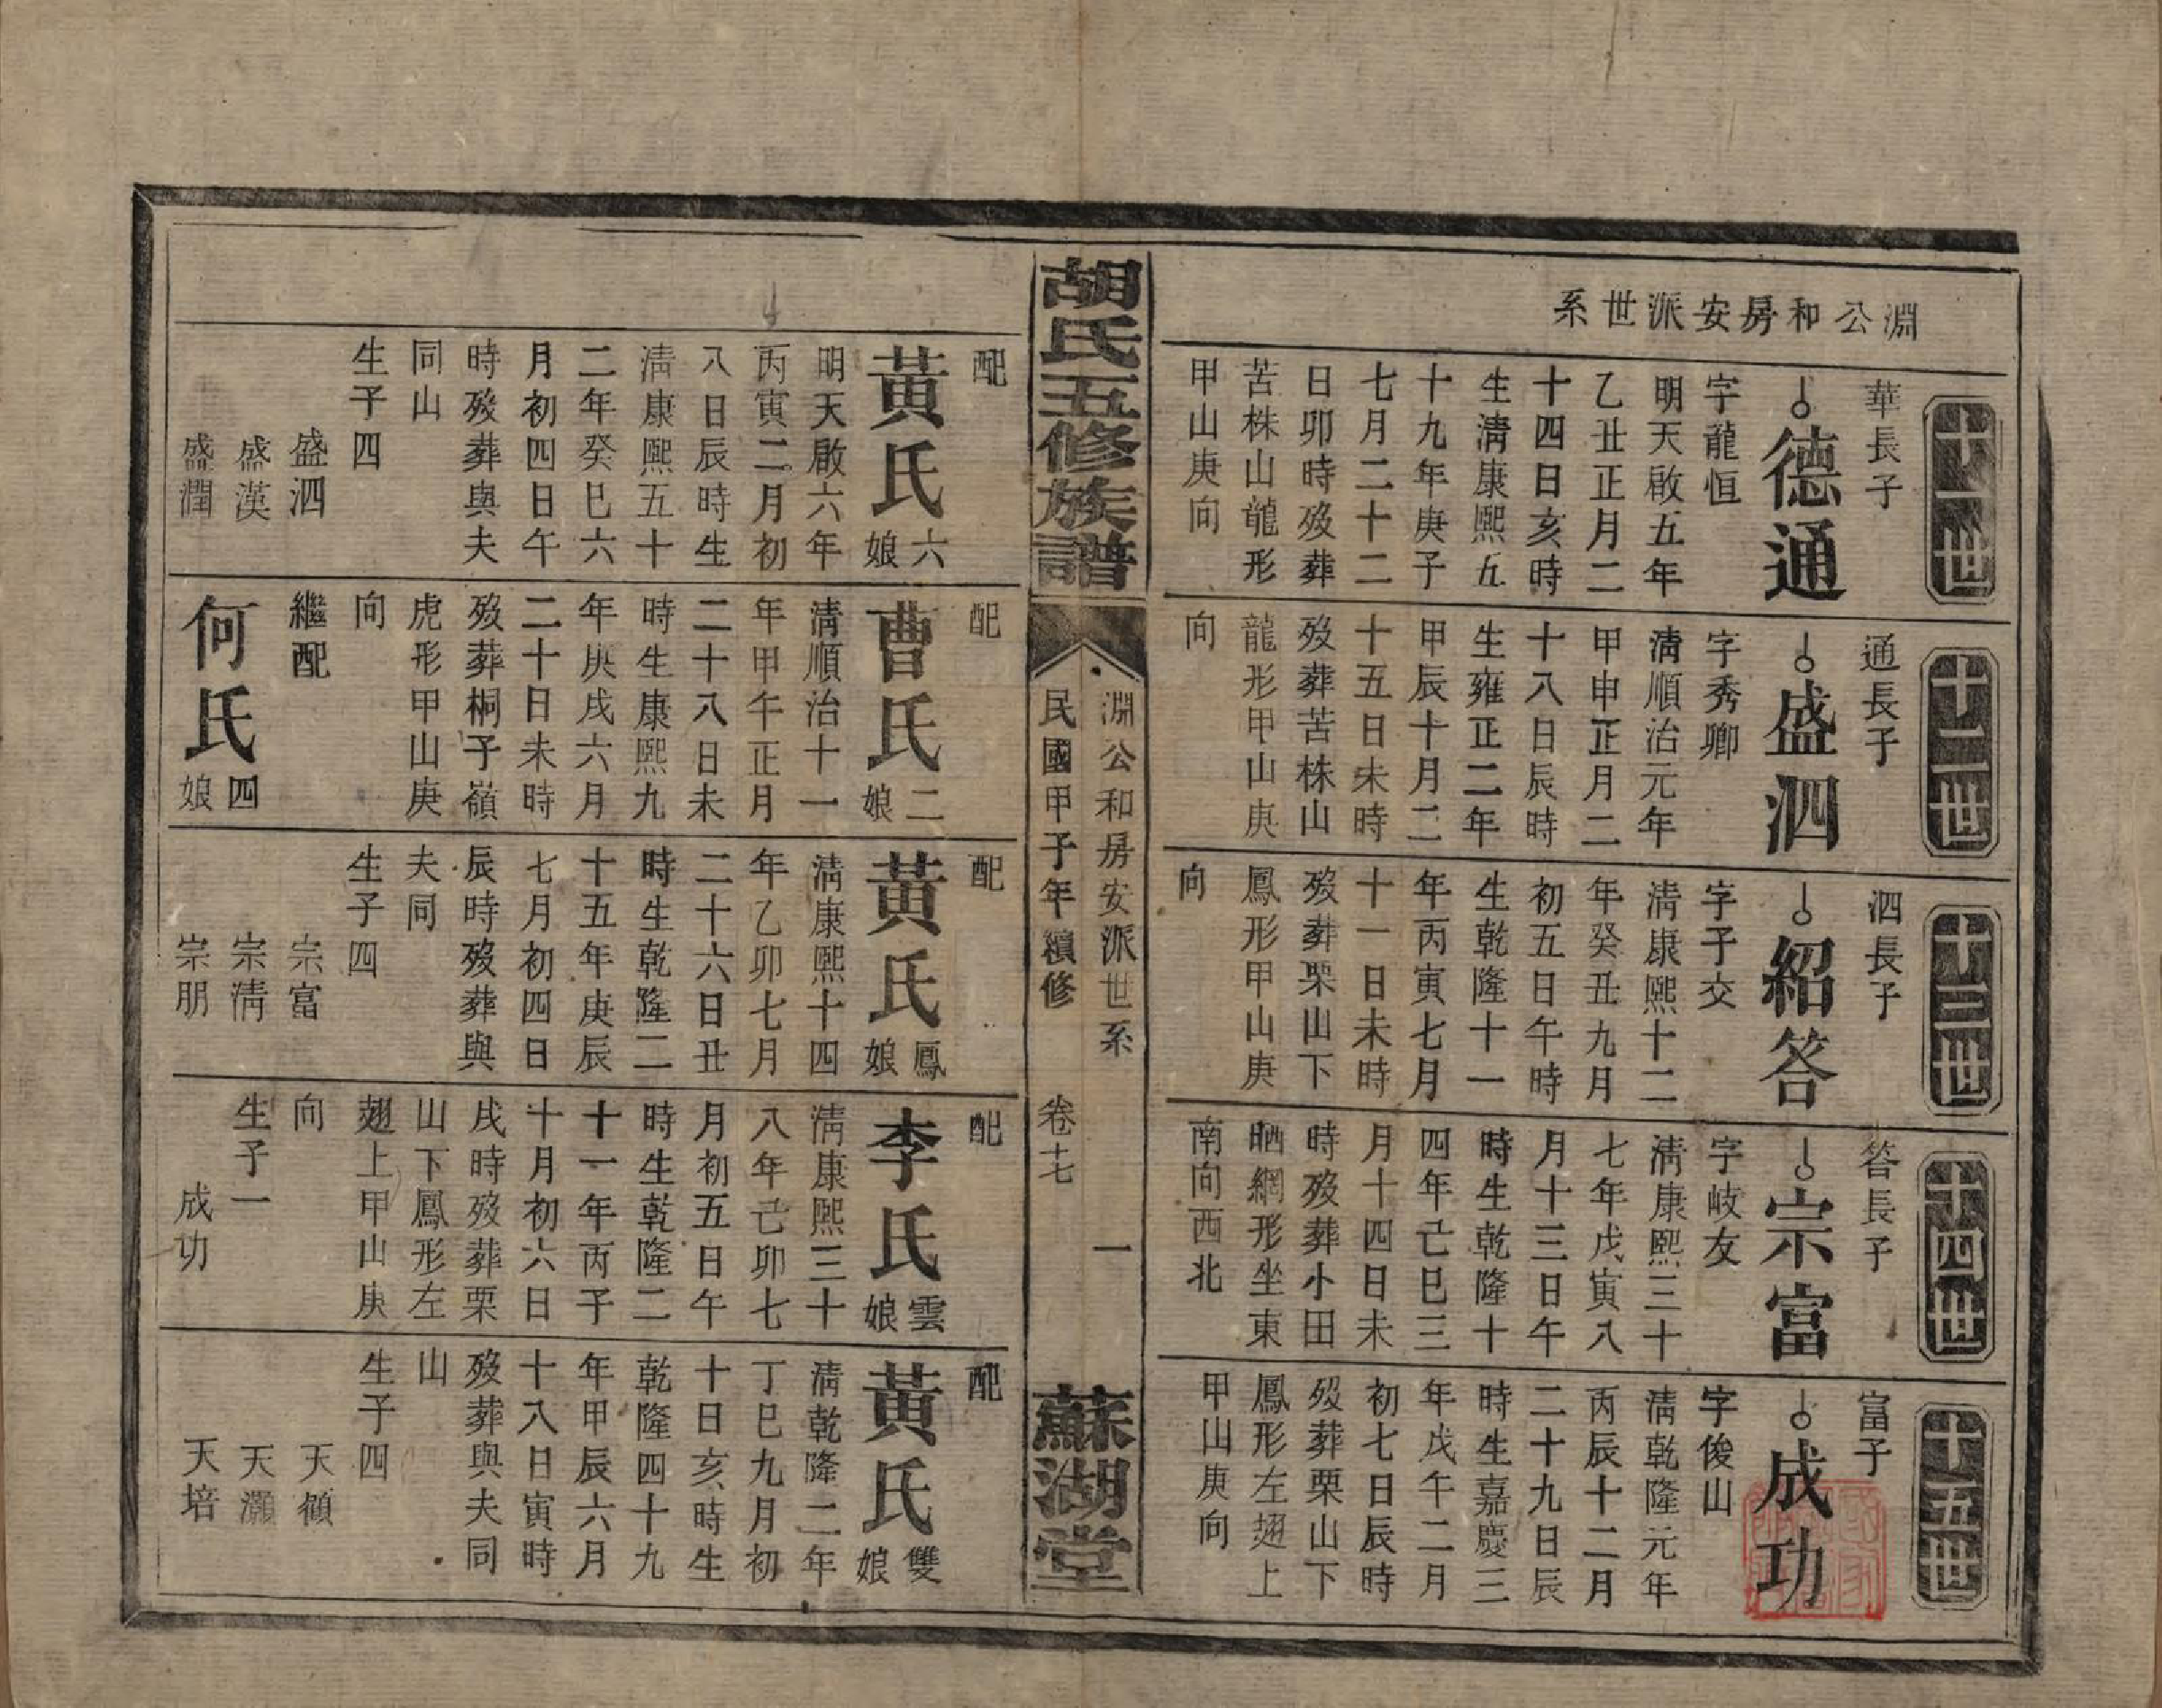 淵公和房安派世系
十一世
華長子
德通
字龍恒
明天啟五年
乙丑正月二
十四日亥時
生清康熙五
十九年庚子
七月二十二
日卯時歿葬
苦株山龍形
甲山庚向
十二世
通長子
盛泗
字秀卿
清順治元年
甲申正月二
十八日辰時
生雍正二年
甲辰十月二
十五日未時
歿葬苦株山
龍形甲山庚
向
十三世
泗長子
紹答
字子交
清康熙十二
年癸丑九月
初五日午時
生乾隆十一
年丙寅七月
十一日未時
歿葬栗山下
鳳形甲山庚
向
十四世
答長子
宗富
字岐友
清康熙三十
七年戊寅八
月十三日午
時生乾隆十
四年己巳三
月十四日未
時歿葬小田
晒網形坐東
南向西北
十五世
富子
成功
字俊山
清乾隆元年
丙辰十二月
二十九日辰
時生嘉慶三
年戊午二月
初七日辰時
歿葬栗山下
鳳形左翅上
甲山庚向
胡氏五修族譜
淵公和房安派世系 一
民國甲子年續修 卷十七
蘇湖堂
配
黃氏六娘
明天啟六年
丙寅二月初
八日辰時生
清康熙五十
二年癸巳六
月初四日午
時歿葬與夫
同山
生子四
盛泗
盛漢
盛潤
配
曹氏二娘
清順治十一
年甲午正月
二十八日未
時生康熙九
年庚戌六月
二十日未時
歿葬桐子嶺
虎形甲山庚
向
繼配
何氏四娘
配
黃氏鳳娘
清康熙十四
年乙卯七月
二十六日丑
時生乾隆二
十五年庚辰
七月初四日
辰時歿葬與
夫同
生子四
宗富
宗清
宗朋
配
李氏雲娘
清康熙三十
八年己卯七
月初五日午
時生乾隆二
十一年丙子
十月初六日
戌時歿葬栗
山下鳳形左
翅上甲山庚
向
生子一
成功
配
黃氏雙娘
清乾隆二年
丁巳九月初
十日亥時生
乾隆四十九
年甲辰六月
十八日寅時
歿葬與夫同
山
生子四
天顧
天灝
天培